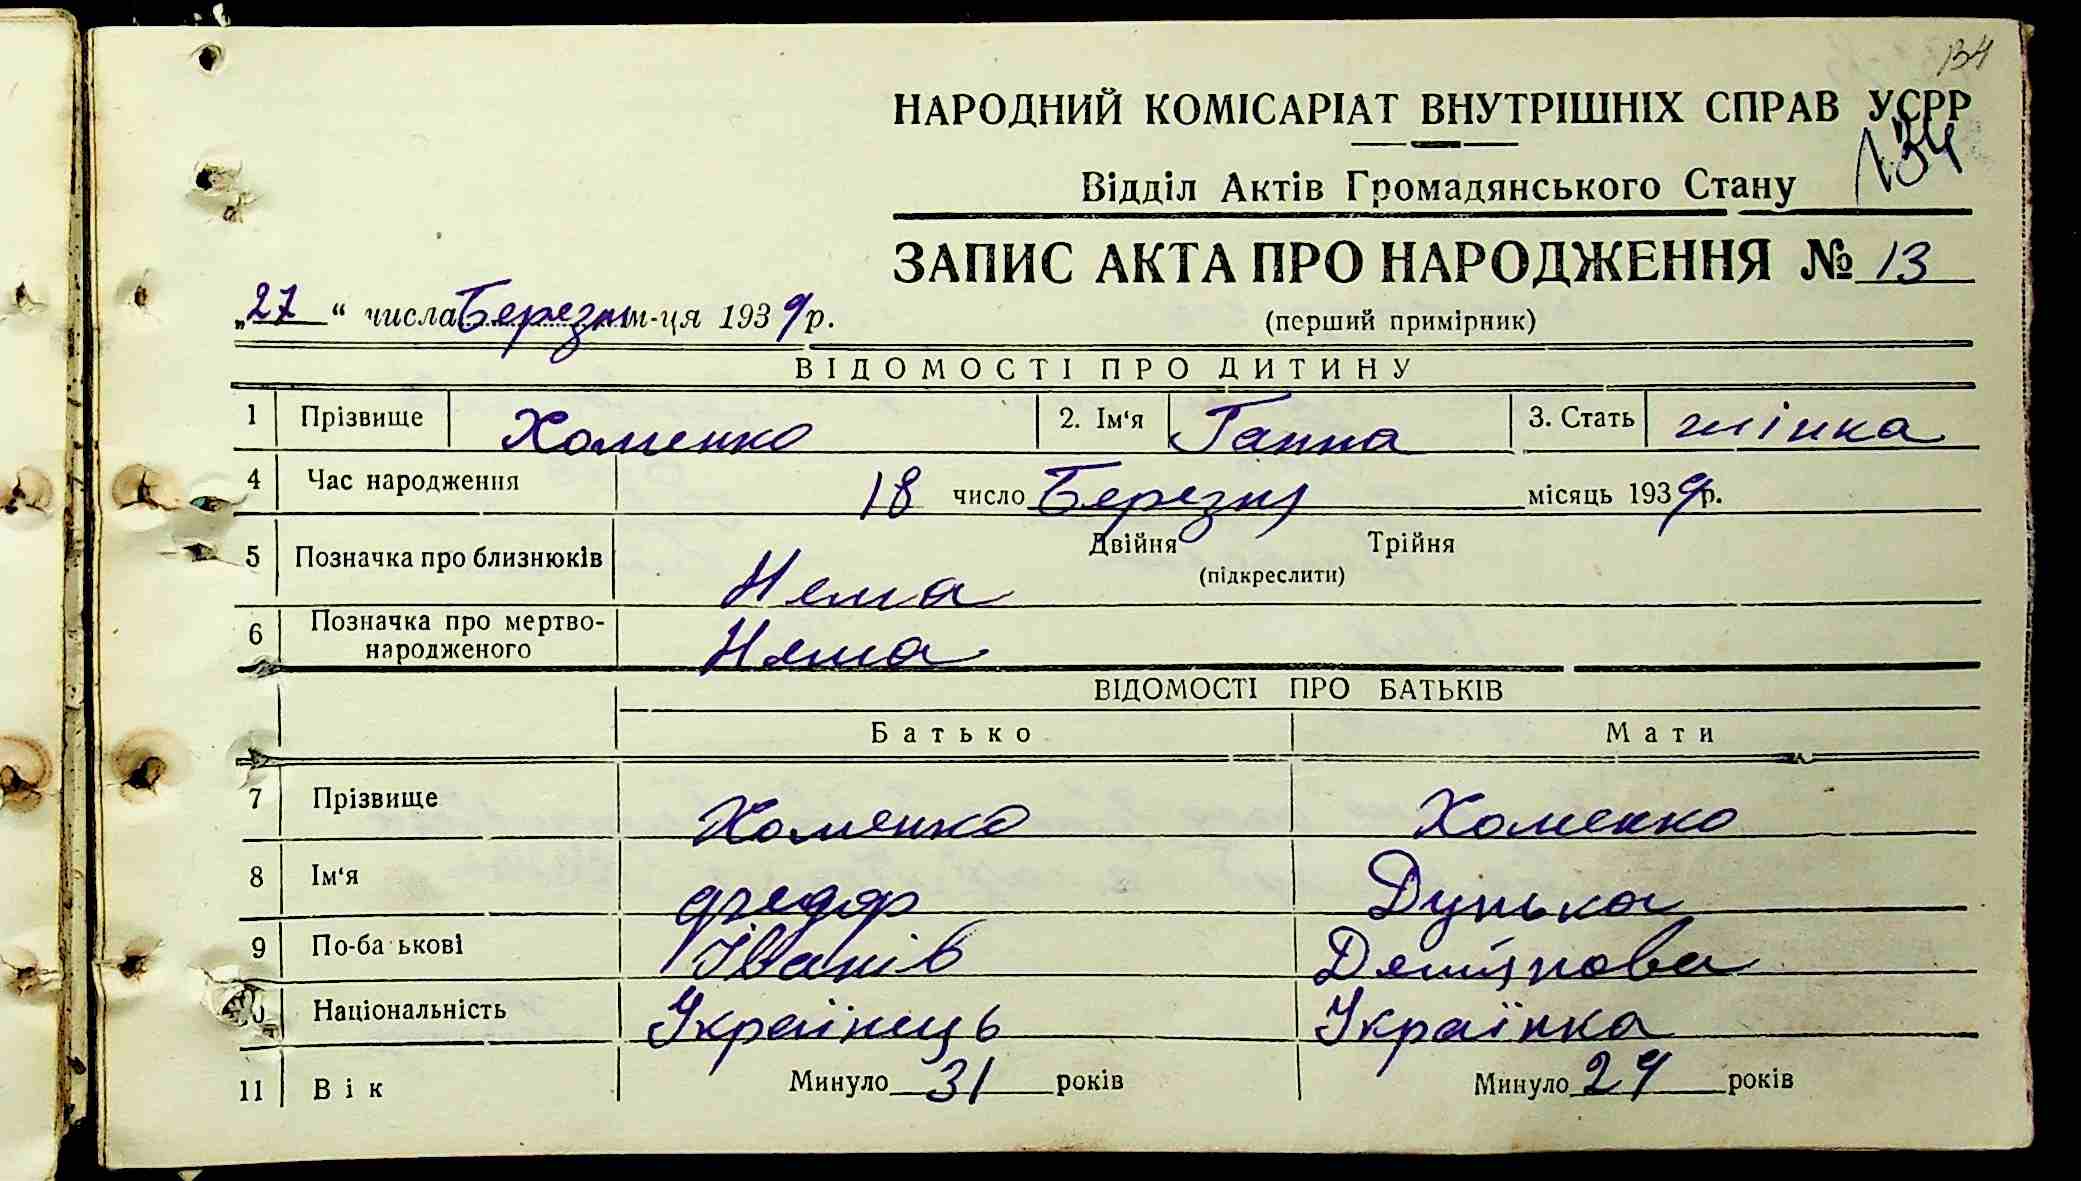 134
НАРОДНИЙ КОМІСАРІАТ ВНУТРІШНІХ СПРАВ УСРР
134
Відділ Актів Громадянського Стану
ЗАПИС АКТА ПРО НАРОДЖЕННЯ № 13
„27“ числа Березня м-ця 1939 р.
(перший примірник)
ВІДОМОСТІ ПРО ДИТИНУ
1 Прізвище Хоменко 2. Ім‘я Ганна 3. Стать жінка
4 Час народження 18 число Березня місяць 1939 р.
5 Позначка про близнюків Нема Двійня Трійня
(підкреслити)
6 Позначка про мертво-
народженого Нема
ВІДОМОСТІ ПРО БАТЬКІВ
Батько Мати
7 Прізвище Хоменко Хоменко
8 Ім‘я Федор Дунька
9 По-ба ькові Іванів Демянова
Національність Українець Українка
11 Вік Минуло 31 років Минуло 29 років